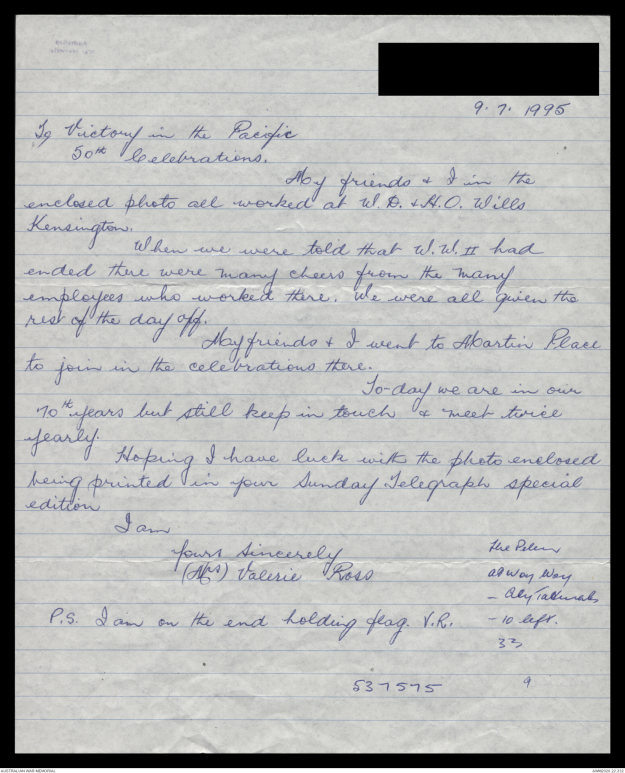 9. 7. 1995
To Victory in the Pacific
50th Celebrations.
My friends & I in the
enclosed photo all worked at W.D. & H.O. Wills
Kensington.
When we were told that W.W.II had
ended there were many cheers from the many
employees who worked there. We were all given the
rest of the day off.
My friends & I went to Martin Place
to join in the celebrations there.
To-day we are in our
70th years but still keep in touch & meet twice
yearly.
Hoping I have luck with the photo enclosed
being printed in your Sunday Telegraph special
edition
I am
yours Sincerely
(Mrs) Valerie Ross
P.S. I am on the end holding flag. V.R.
at Woy Woy
- 10 left.
33
9
537575
AUSTRALIAN WAR MEMORIAL